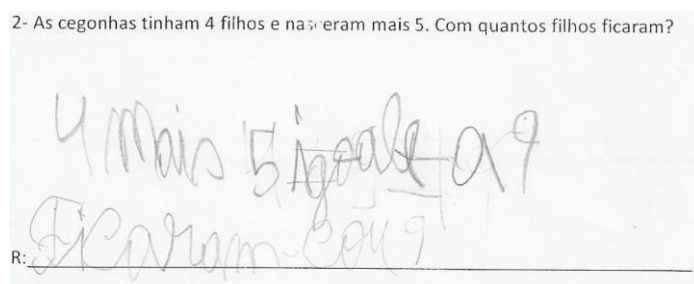 2- As cegonhas tinham 4 filhos e nasceram mais 5. Com quantos filhos ficaram?
4 mais 5 igoale a 9
R: Ficaram com 9